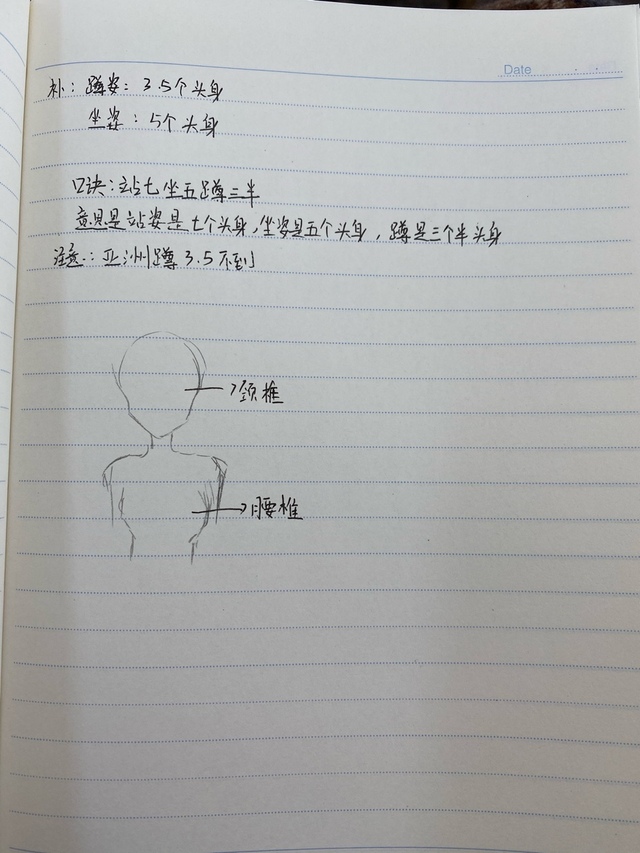 Date
补：蹲姿：3.5个头身
坐姿：5个头身
口诀：站七坐五蹲三半
意思是站姿是七个头身，坐姿是五个头身，蹲是三个半头身
注意：亚洲蹲3.5不到
颈椎
腰椎